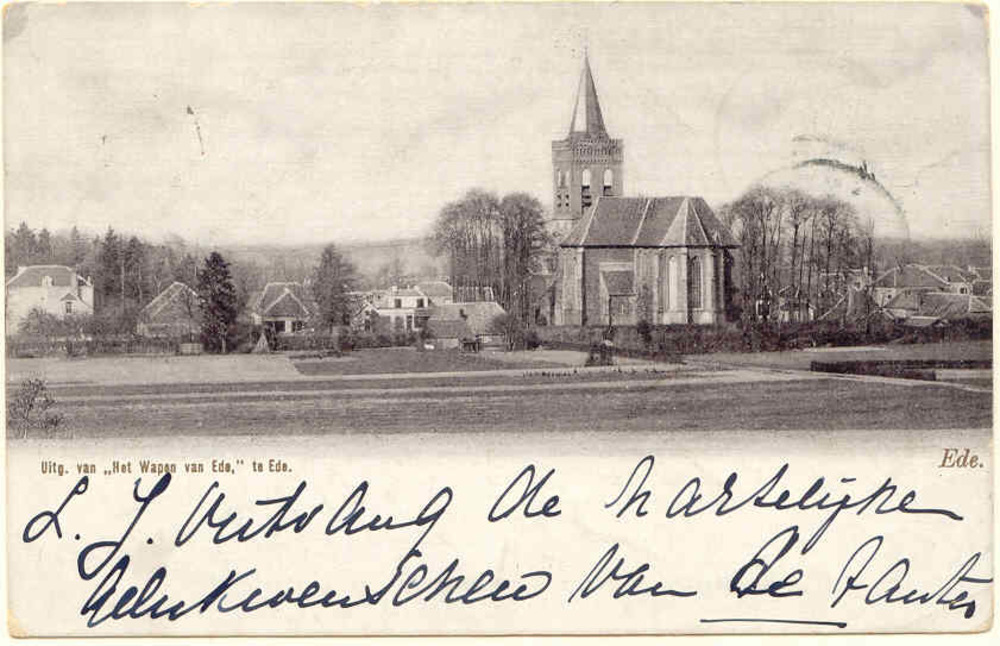 Uitg. van „Het Wapen van Ede,” te Ede.
Ede.
L. J. Ontvang de hartelijke
Gelukwenschen van de tantes